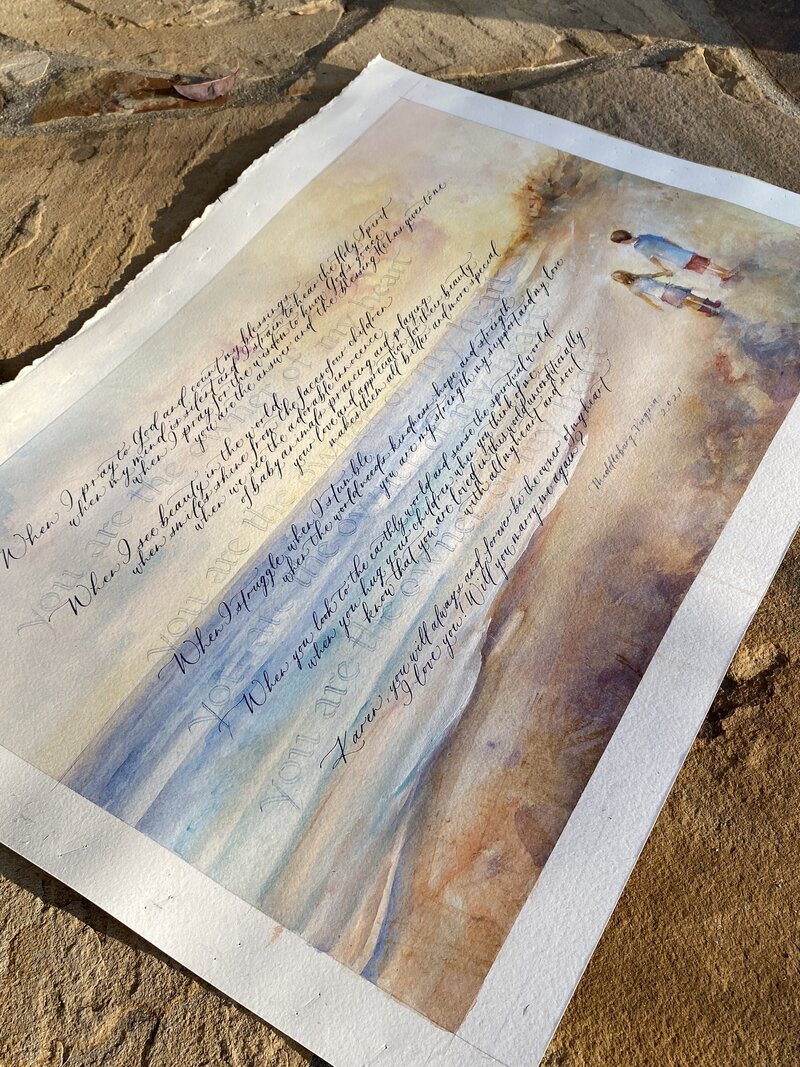 When I pray to God and count my blessings
when my mind is silent and I strain to hear the Holy Spirit
when I pray for the wisdom to know God's Grace
you are the answer and the blessing He has given to me
you are the owner of my heart
When I see beauty in the world
when smiles shine from the faces of our children
when we see the adorable innocence
of baby animals prancing and playing
your love and appreciation for their beauty
makes them all better and more special
you are the owner of my heart
When I struggle, when I stumble
when the world needs kindness, hope and strength
you are my strength, my support and my love
you are the owner
When you look to the earthly world and sense the spiritual world,
when you hug your children, when you think of me
know that you are loved in this world unconditionally
with all my heart and soul
you are the owner
Karen, you will always and forever be the owner of my heart
I love you. Will you marry me again?
Middleburg, Virginia
2021